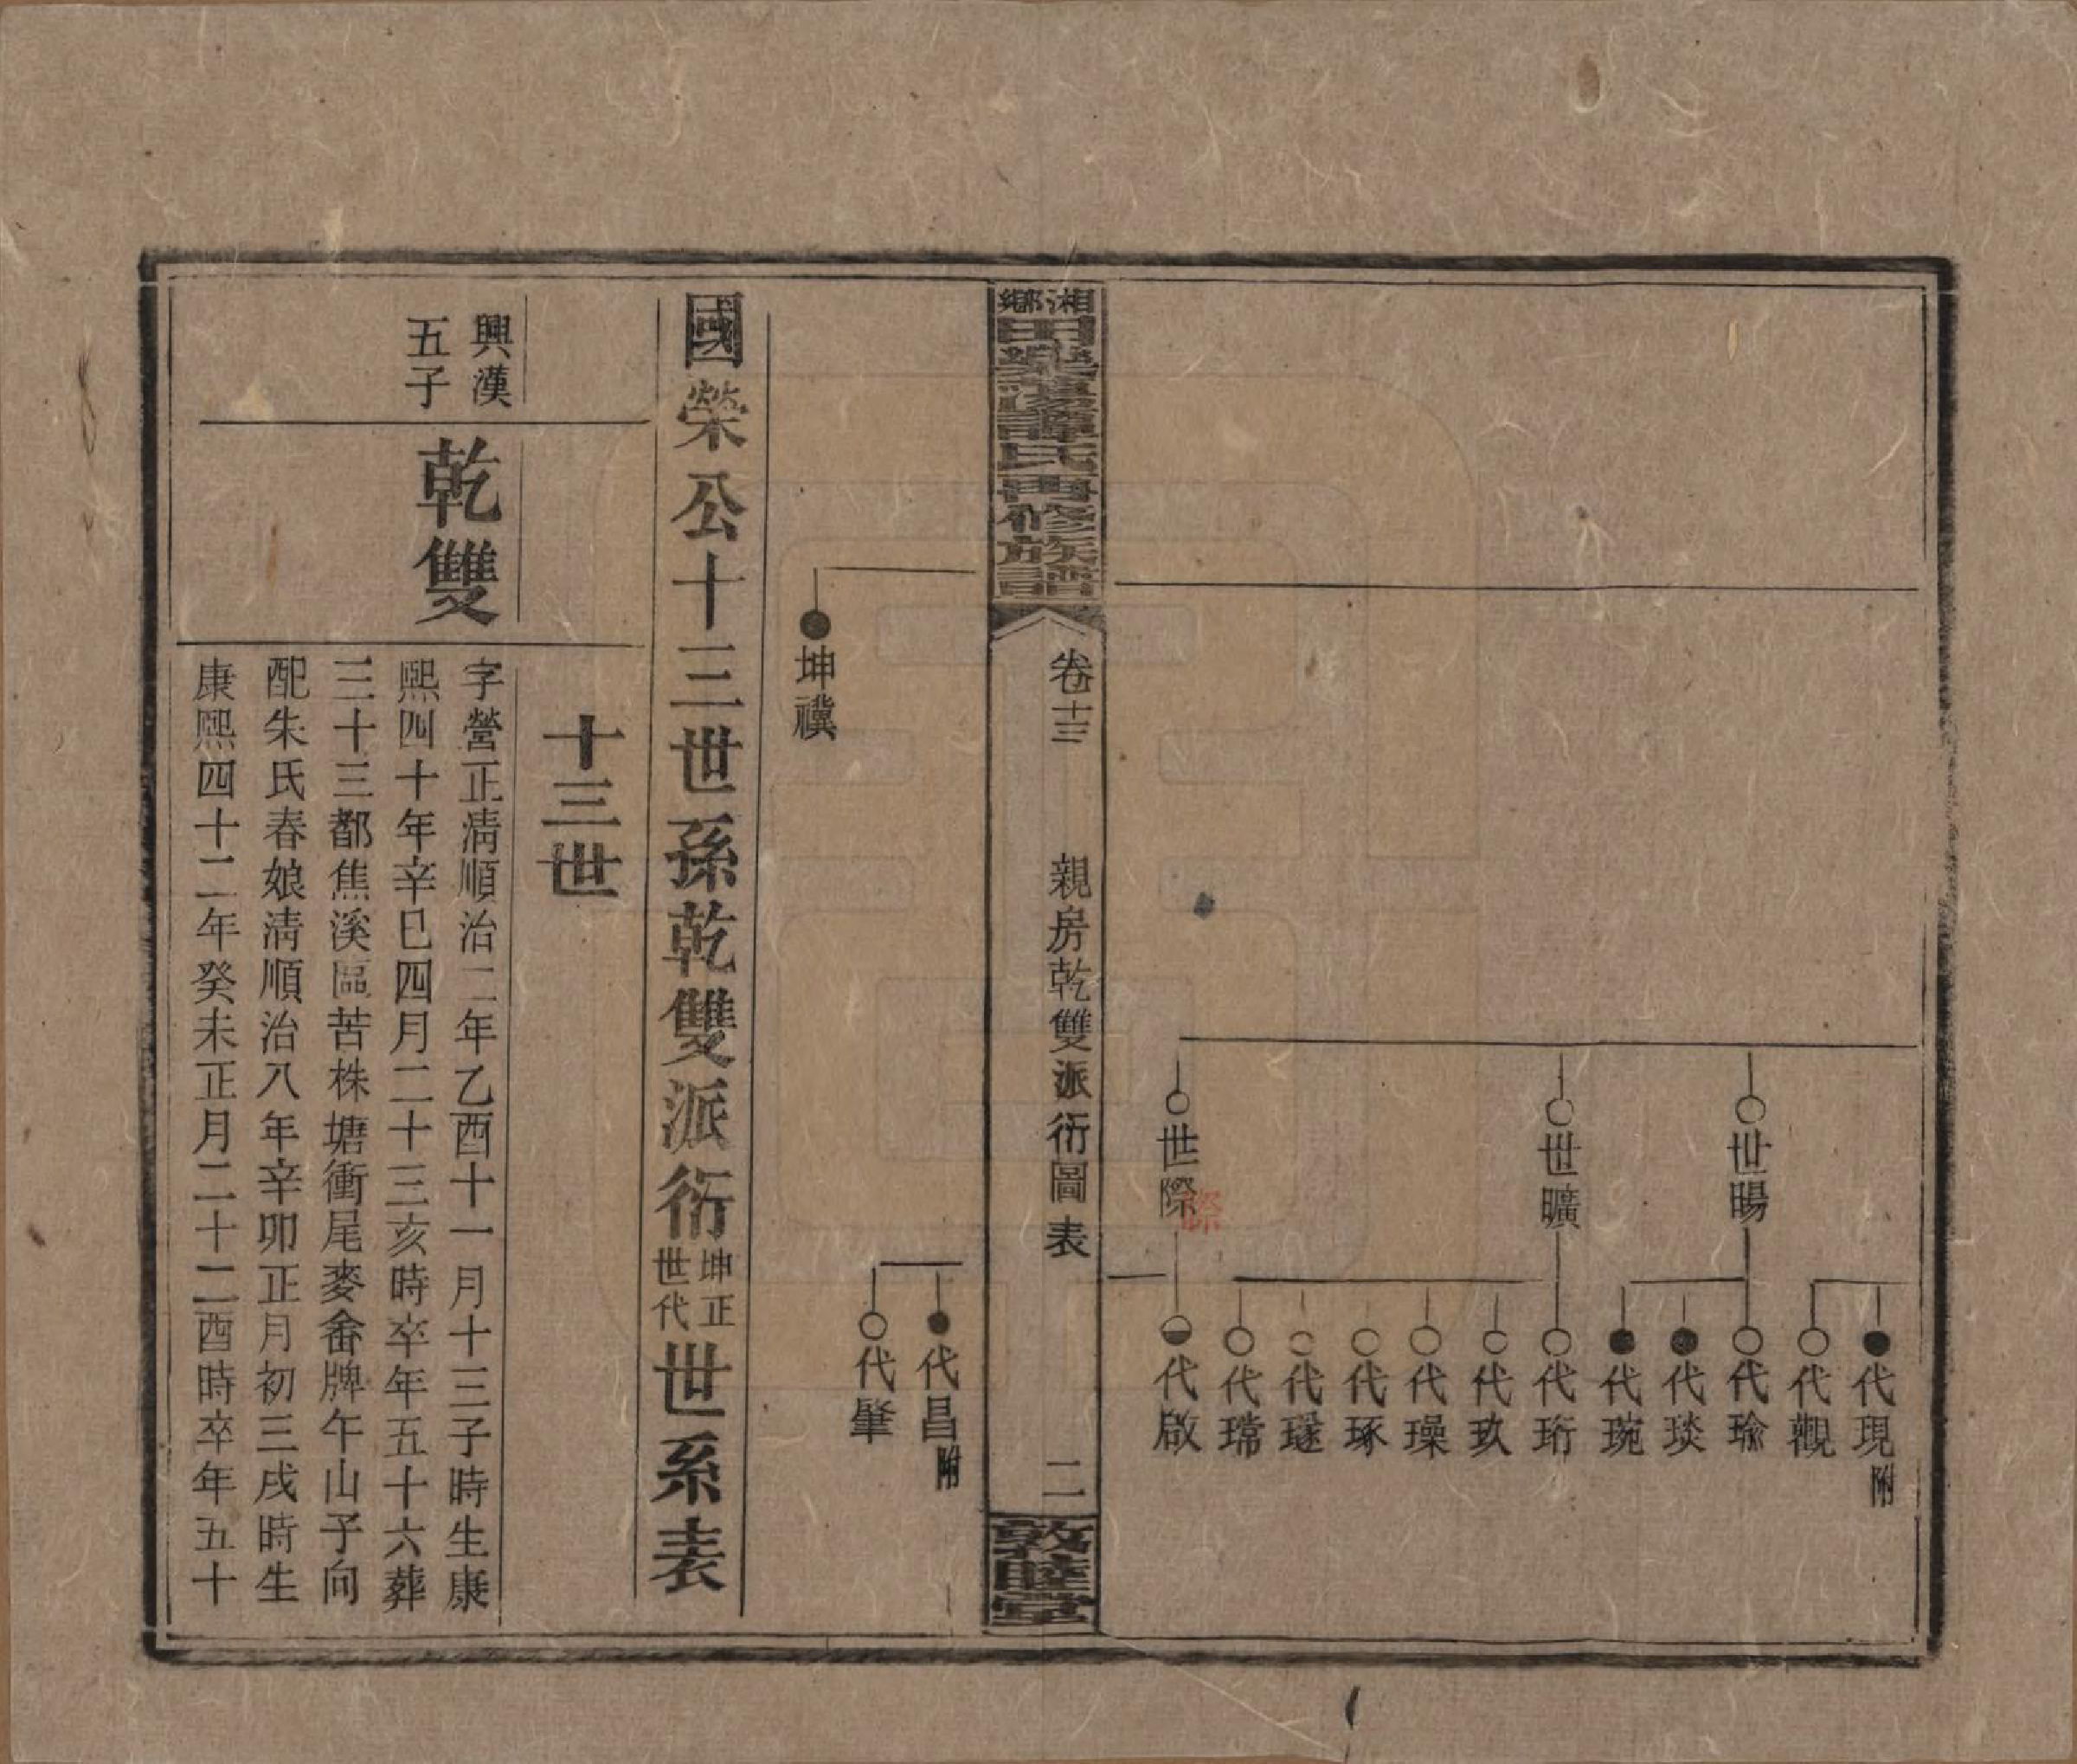 世暘
世曠
世際
際
代現附
代觀
代瑜
代琰
代琬
代珩
代玖
代璪
代琢
代璲
代瑺
代啟
湘鄉
田樂灣譚氏再修族譜
卷十三
親房乾雙派衍圖表
二
敦睦堂
坤禩
代昌附
代肇
國榮公十三世孫乾雙派衍坤正世代世系表
十三世
興漢
五子
乾雙
字營正清順治二年乙酉十一月十三子時生康
熙四十年辛巳四月二十三亥時卒年五十六葬
三十三都焦溪區苦株塘衝尾麥畬牌午山子向
配朱氏春娘清順治八年辛卯正月初三戌時生
康熙四十二年癸未正月二十二酉時卒年五十